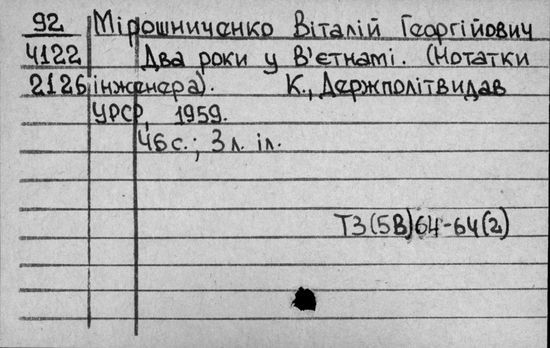 92 Мірошниченко Віталій Георгійович
4122 Два роки у В'єтнамі. (Нотатки
2126 інженера). К., Держполітвидав
УРСР, 1959.
46 с.; 3 л. іл.
Т3(5В)64-64(2)